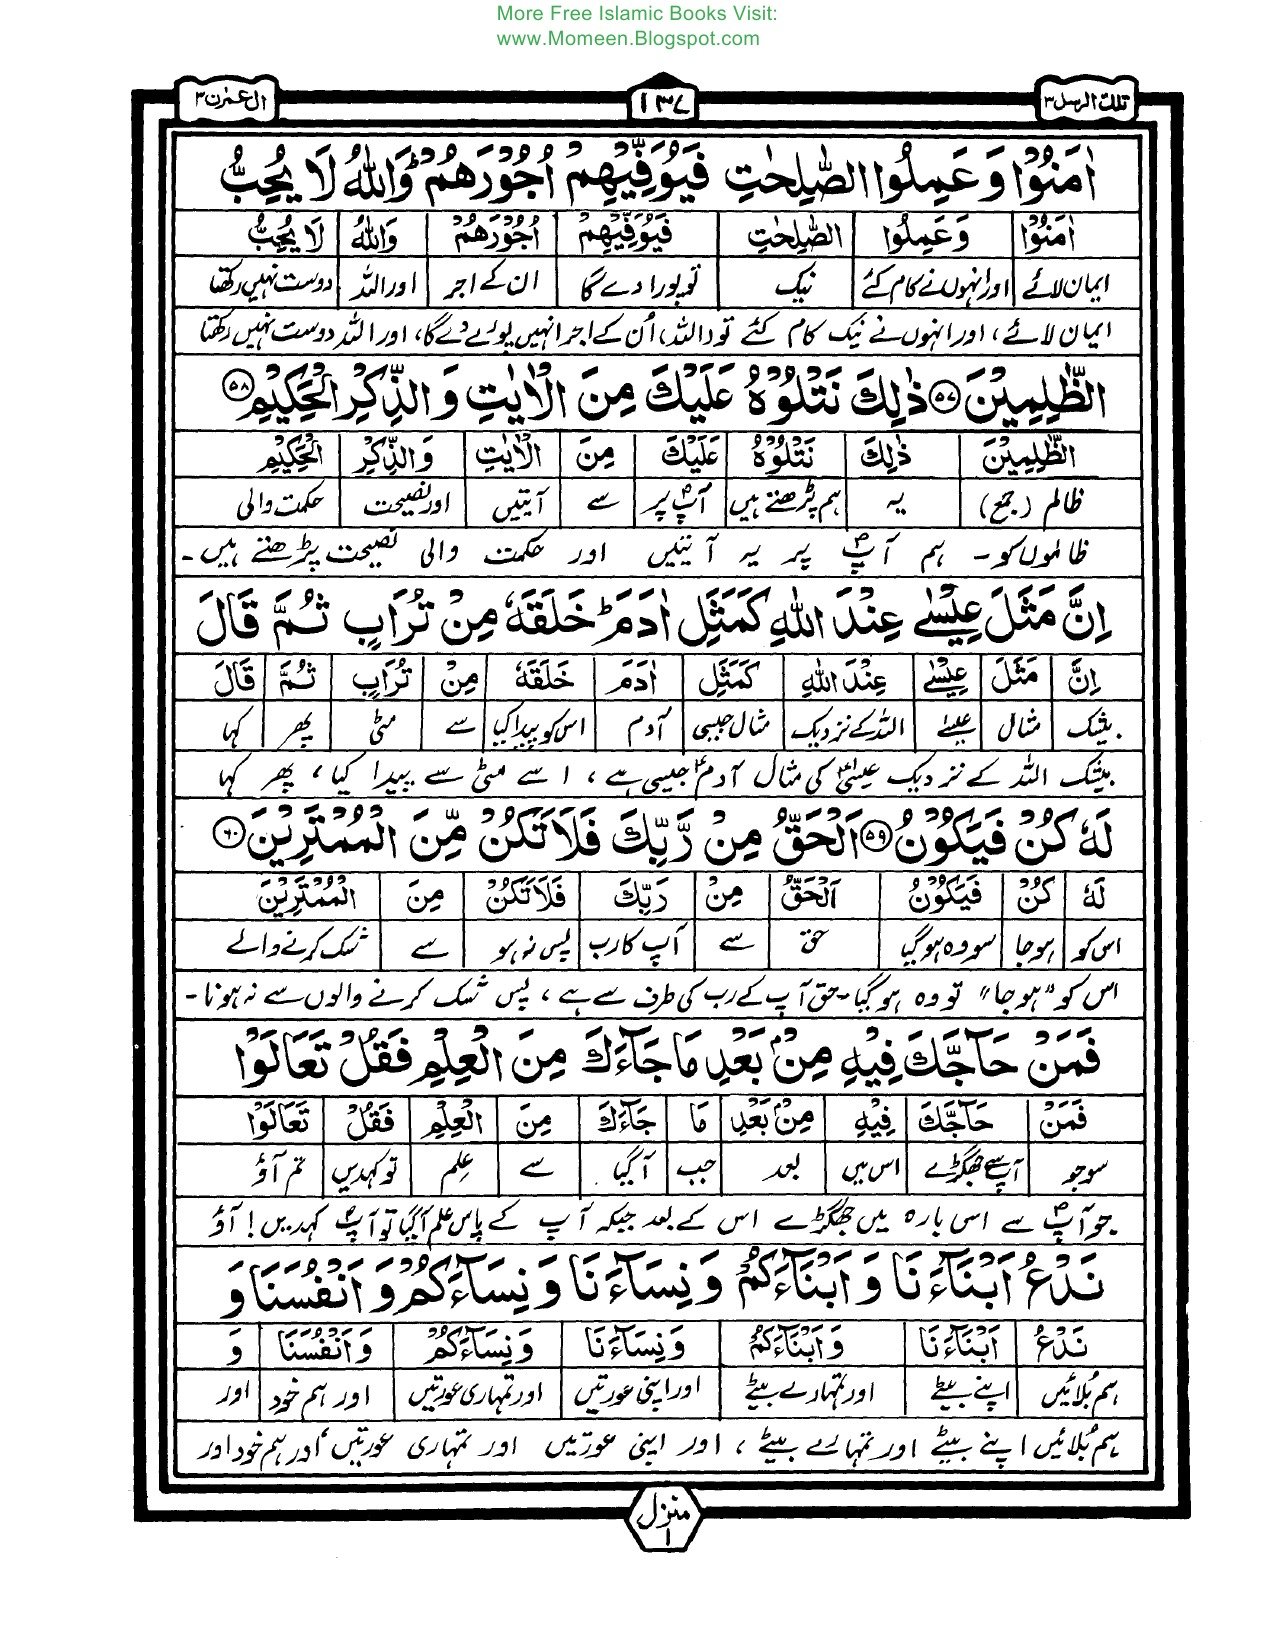 More Free Islamic Books Visit:
www.Momeen.Blogspot.com
تلك الرسل ٣ ١٣٧ ال عمرٰن ٣
اٰمَنُوْا وَعَمِلُوا الصّٰلِحٰتِ فَيُوَفِّيْهِمْ اُجُوْرَهُمْ ؕ وَاللّٰهُ لَا يُحِبُّ
اٰمَنُوْا وَعَمِلُوا الصّٰلِحٰتِ فَيُوَفِّيْهِمْ اُجُوْرَهُمْ وَاللّٰهُ لَا يُحِبُّ
ایمان لائے اور انہوں نے کام کئے نیک تو پورا دے گا ان کے اجر اور اللہ دوست نہیں رکھتا
ایمان لائے، اور انہوں نے نیک کام کئے تو (اللہ) اُن کے اجر انہیں پورے دے گا، اور اللہ دوست نہیں رکھتا
الظّٰلِمِيْنَ ﴿٥٧﴾ ذٰلِكَ نَتْلُوْهُ عَلَيْكَ مِنَ الْاٰيٰتِ وَالذِّكْرِ الْحَكِيْمِ ﴿٥٨﴾
الظّٰلِمِيْنَ ذٰلِكَ نَتْلُوْهُ عَلَيْكَ مِنَ الْاٰيٰتِ وَالذِّكْرِ الْحَكِيْمِ
ظالم (جمع) یہ ہم پڑھتے ہیں آپؐ پر سے آیتیں اور نصیحت حکمت والی
ظالموں کو۔ ہم آپؐ پر یہ آیتیں اور حکمت والی نصیحت پڑھتے ہیں۔
اِنَّ مَثَلَ عِيْسٰى عِنْدَ اللّٰهِ كَمَثَلِ اٰدَمَ ؕ خَلَقَهٗ مِنْ تُرَابٍ ثُمَّ قَالَ
اِنَّ مَثَلَ عِيْسٰى عِنْدَ اللّٰهِ كَمَثَلِ اٰدَمَ خَلَقَهٗ مِنْ تُرَابٍ ثُمَّ قَالَ
بیشک مثال عیسےٰ اللہ کے نزدیک مثال جیسی آدم اس کو پیدا کیا سے مٹی پھر کہا
بیشک اللہ کے نزدیک عیسیٰؑ کی مثال آدمؑ جیسی ہے، اسے مٹی سے پیدا کیا، پھر کہا
لَهٗ كُنْ فَيَكُوْنُ ﴿٥٩﴾ اَلْحَقُّ مِنْ رَّبِّكَ فَلَا تَكُنْ مِّنَ الْمُمْتَرِيْنَ ﴿٦٠﴾
لَهٗ كُنْ فَيَكُوْنُ اَلْحَقُّ مِنْ رَبِّكَ فَلَا تَكُنْ مِنَ الْمُمْتَرِيْنَ
اس کو ہوجا سو وہ ہوگیا حق سے آپ کا رب پس نہ ہو سے شک کرنے والے
اس کو "ہوجا" تو وہ ہوگیا۔ حق آپ کے رب کی طرف سے ہے، پس شک کرنے والوں سے نہ ہونا۔
فَمَنْ حَآجَّكَ فِيْهِ مِنْۢ بَعْدِ مَا جَآءَكَ مِنَ الْعِلْمِ فَقُلْ تَعَالَوْا
فَمَنْ حَآجَّكَ فِيْهِ مِنْۢ بَعْدِ مَا جَآءَكَ مِنَ الْعِلْمِ فَقُلْ تَعَالَوْا
سو جو آپ سے جھگڑے اس میں بعد جب آگیا سے علم تو کہدیں تم آؤ
جو آپؐ سے اس بارہ میں جھگڑے اس کے بعد جبکہ آپ کے پاس علم آگیا تو آپؐ کہدیں! آؤ
نَدْعُ اَبْنَآءَنَا وَاَبْنَآءَكُمْ وَنِسَآءَنَا وَنِسَآءَكُمْ وَاَنْفُسَنَا وَ
نَدْعُ اَبْنَآءَنَا وَاَبْنَآءَكُمْ وَنِسَآءَنَا وَنِسَآءَكُمْ وَاَنْفُسَنَا وَ
ہم بُلائیں اپنے بیٹے اور تمہارے بیٹے اور اپنی عورتیں اور تمہاری عورتیں اور ہم خود اور
ہم بُلائیں اپنے بیٹے اور تمہارے بیٹے، اور اپنی عورتیں اور تمہاری عورتیں اور ہم خود اور
منزل ١